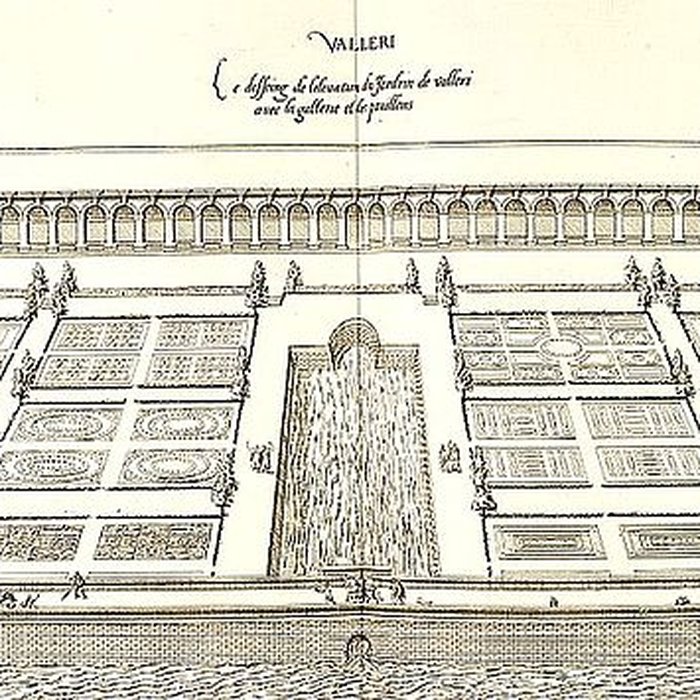 VALLERI
Le desseing de lelevation du Jardin de valleri
avec la gallerie et les pavillons